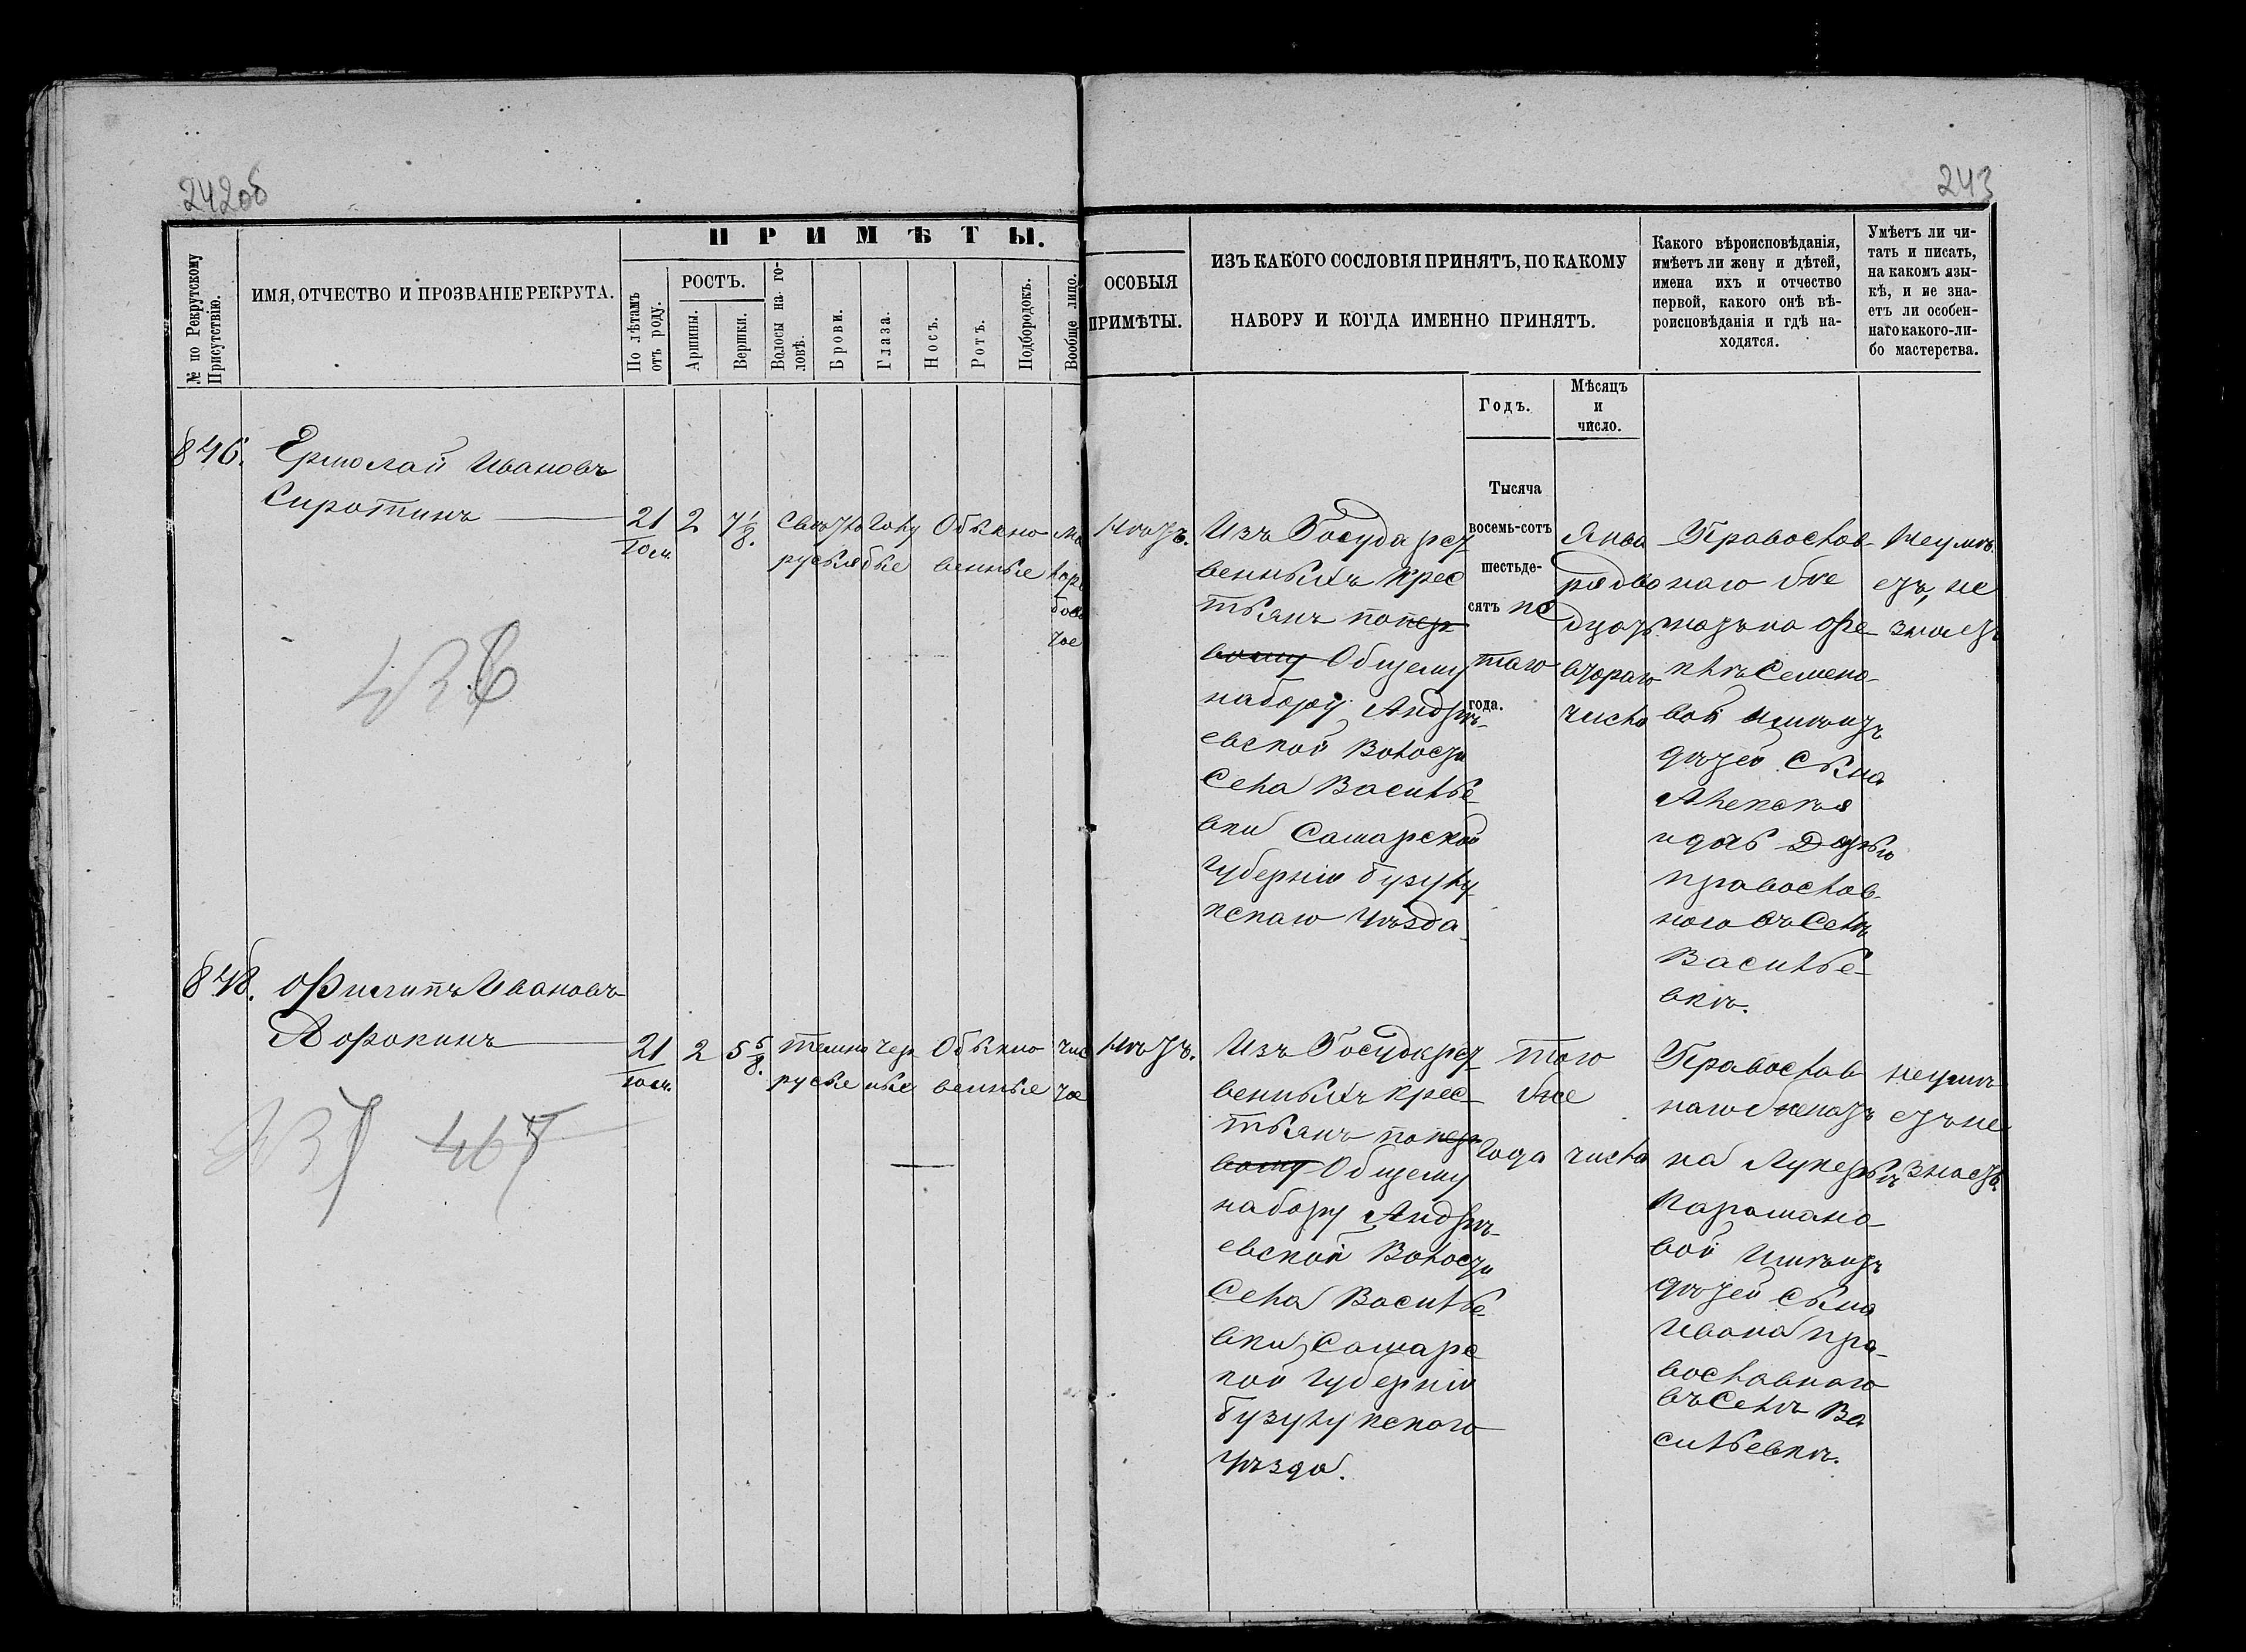 242об
243
ПРИМѢТЫ.
№ по Рекрутскому Присутствію.
ИМЯ, ОТЧЕСТВО И ПРОЗВАНІЕ РЕКРУТА.
По лѣтамъ отъ роду.
РОСТЪ.
Аршины.
Вершки.
Волосы на головѣ.
Брови.
Глаза.
Носъ.
Ротъ.
Подбородокъ.
Вообще лицо.
ОСОБЫЯ
ПРИМѢТЫ.
ИЗЪ КАКОГО СОСЛОВІЯ ПРИНЯТЪ, ПО КАКОМУ
НАБОРУ И КОГДА ИМЕННО ПРИНЯТЪ.
Какого вѣроисповѣданія,
имѣетъ ли жену и дѣтей,
имена ихъ и отчество
первой, какого онѣ вѣ-
роисповѣданія и гдѣ на-
ходятся.
Умѣетъ ли чи-
тать и писать,
на какомъ язы-
кѣ, и не зна-
етъ ли особен-
наго какого-ли-
бо мастерства.
Годъ.
Мѣсяцъ
и
число.
846.
Ермолай Ивановъ
Сиротинъ
21
2
7 1/8.
Свѣтло
русыя
Голу
бые
Обыкно
венные
нѣтъ.
Изъ Государст
венныхъ крес
тьянъ по пер
вому Общему
набору Андрѣ-
евской Волости
Села Василье-
вки Самарской
Губерніи Бузулу-
кскаго Уѣзда.
Тысяча
восемь-сотъ
шестьде-
сятъ пя
таго
года.
Янва
ря два
дцать
втораго
числа
Православ-
наго же
натъ на
Семено-
вой имѣетъ
дѣтей Сына
Алексѣя
и дочь Дарью
православ-
ного въ Селѣ
Василье-
вкѣ.
Неумѣ-
етъ, не
знаетъ
436
848.
Филипъ Ивановъ
Дорокинъ
21
2
5 5/8.
темно
русые
чер
ные
Обыкно
венные
чис
тое
нѣтъ.
Изъ Государст
венныхъ крес-
тьянъ по пер
вому Общему
набору Андрѣ-
евской Волости
Села Василье-
вки Самарс
кой Губерніи
Бузулукского
Уѣзда.
того
же
Года
числа
Православ
наго женатъ
на Лукерьѣ
вой имѣетъ
дѣтей сына
Ивана пра-
вославнаго
въ Селѣ Ва
сильевкѣ.
неумѣ
етъ не
знаетъ.
437 467